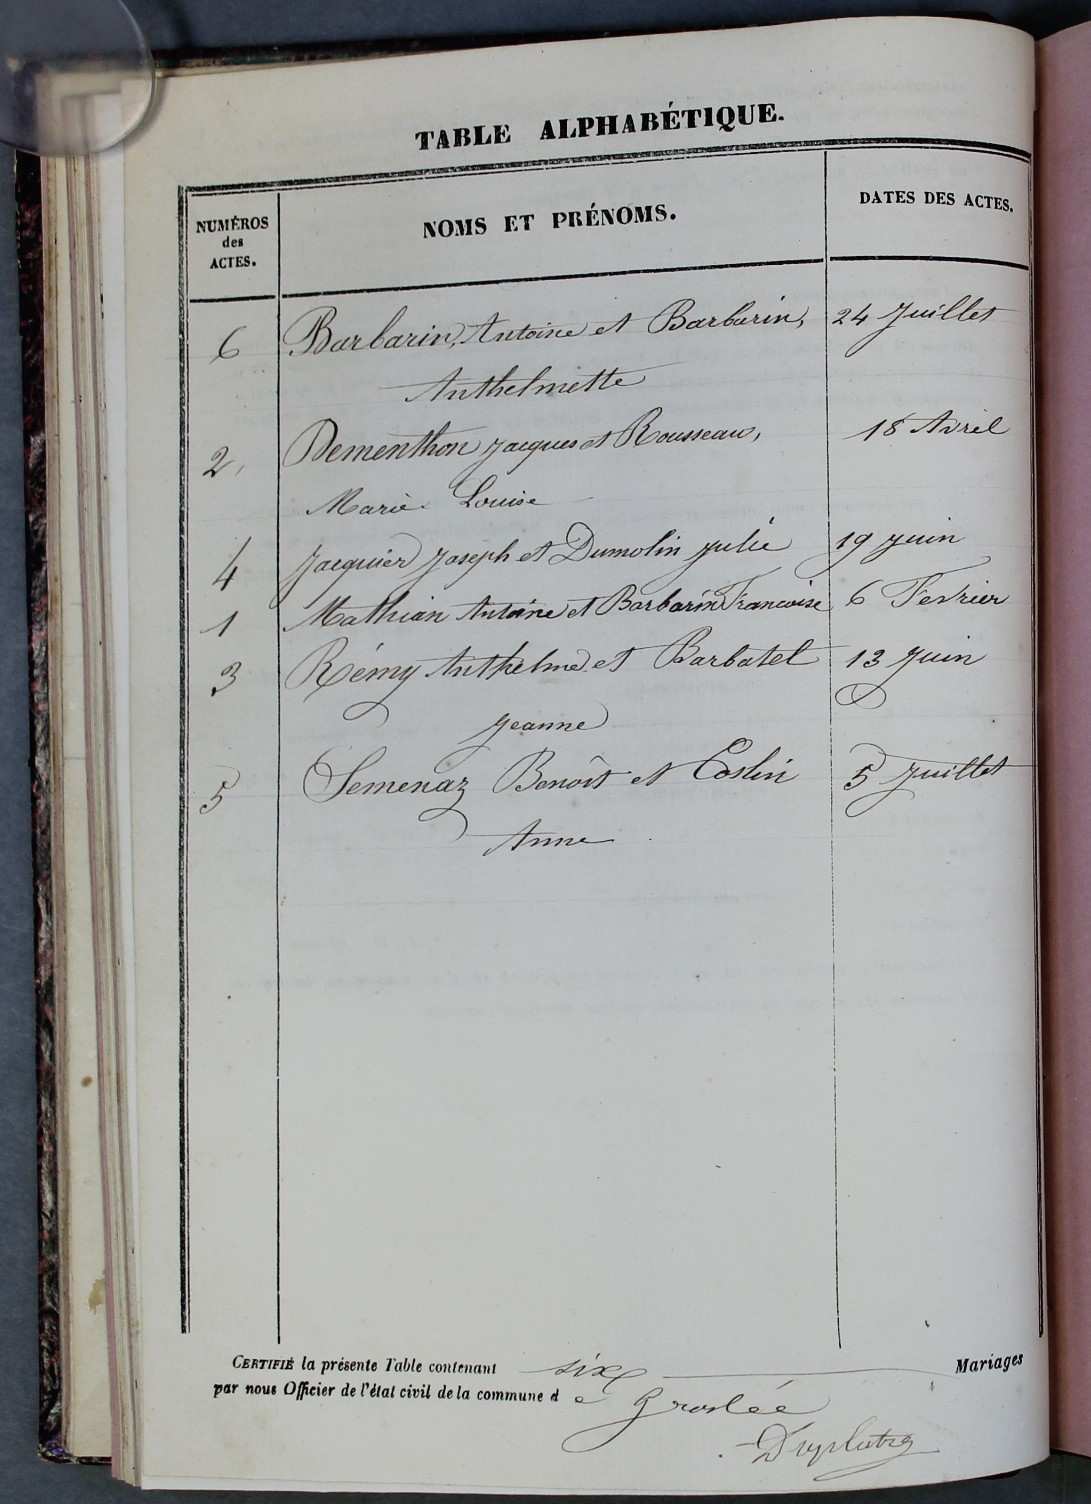 TABLE ALPHABÉTIQUE.
NUMÉROS
des
ACTES.
NOMS ET PRÉNOMS.
DATES DES ACTES.
6 Barbarin, Antoine et Barbarin, 24 Juillet
Anthelmette
2, Dementhon Jacques et Rousseau, 18 Avril
Marie Louise
4 Jacquier Joseph et Dumolin Julie 19 Juin
1 Mathian Antoine et Barbarin Francoise 6 Fevrier
3 Rémy Anthelme et Barbatel 13 Juin
Jeanne
5 Semenaz Benoît et Coslin 5 Juillet
Anne
CERTIFIÉ la présente Table contenant six Mariages
par nous Officier de l'état civil de la commune d e Groslée